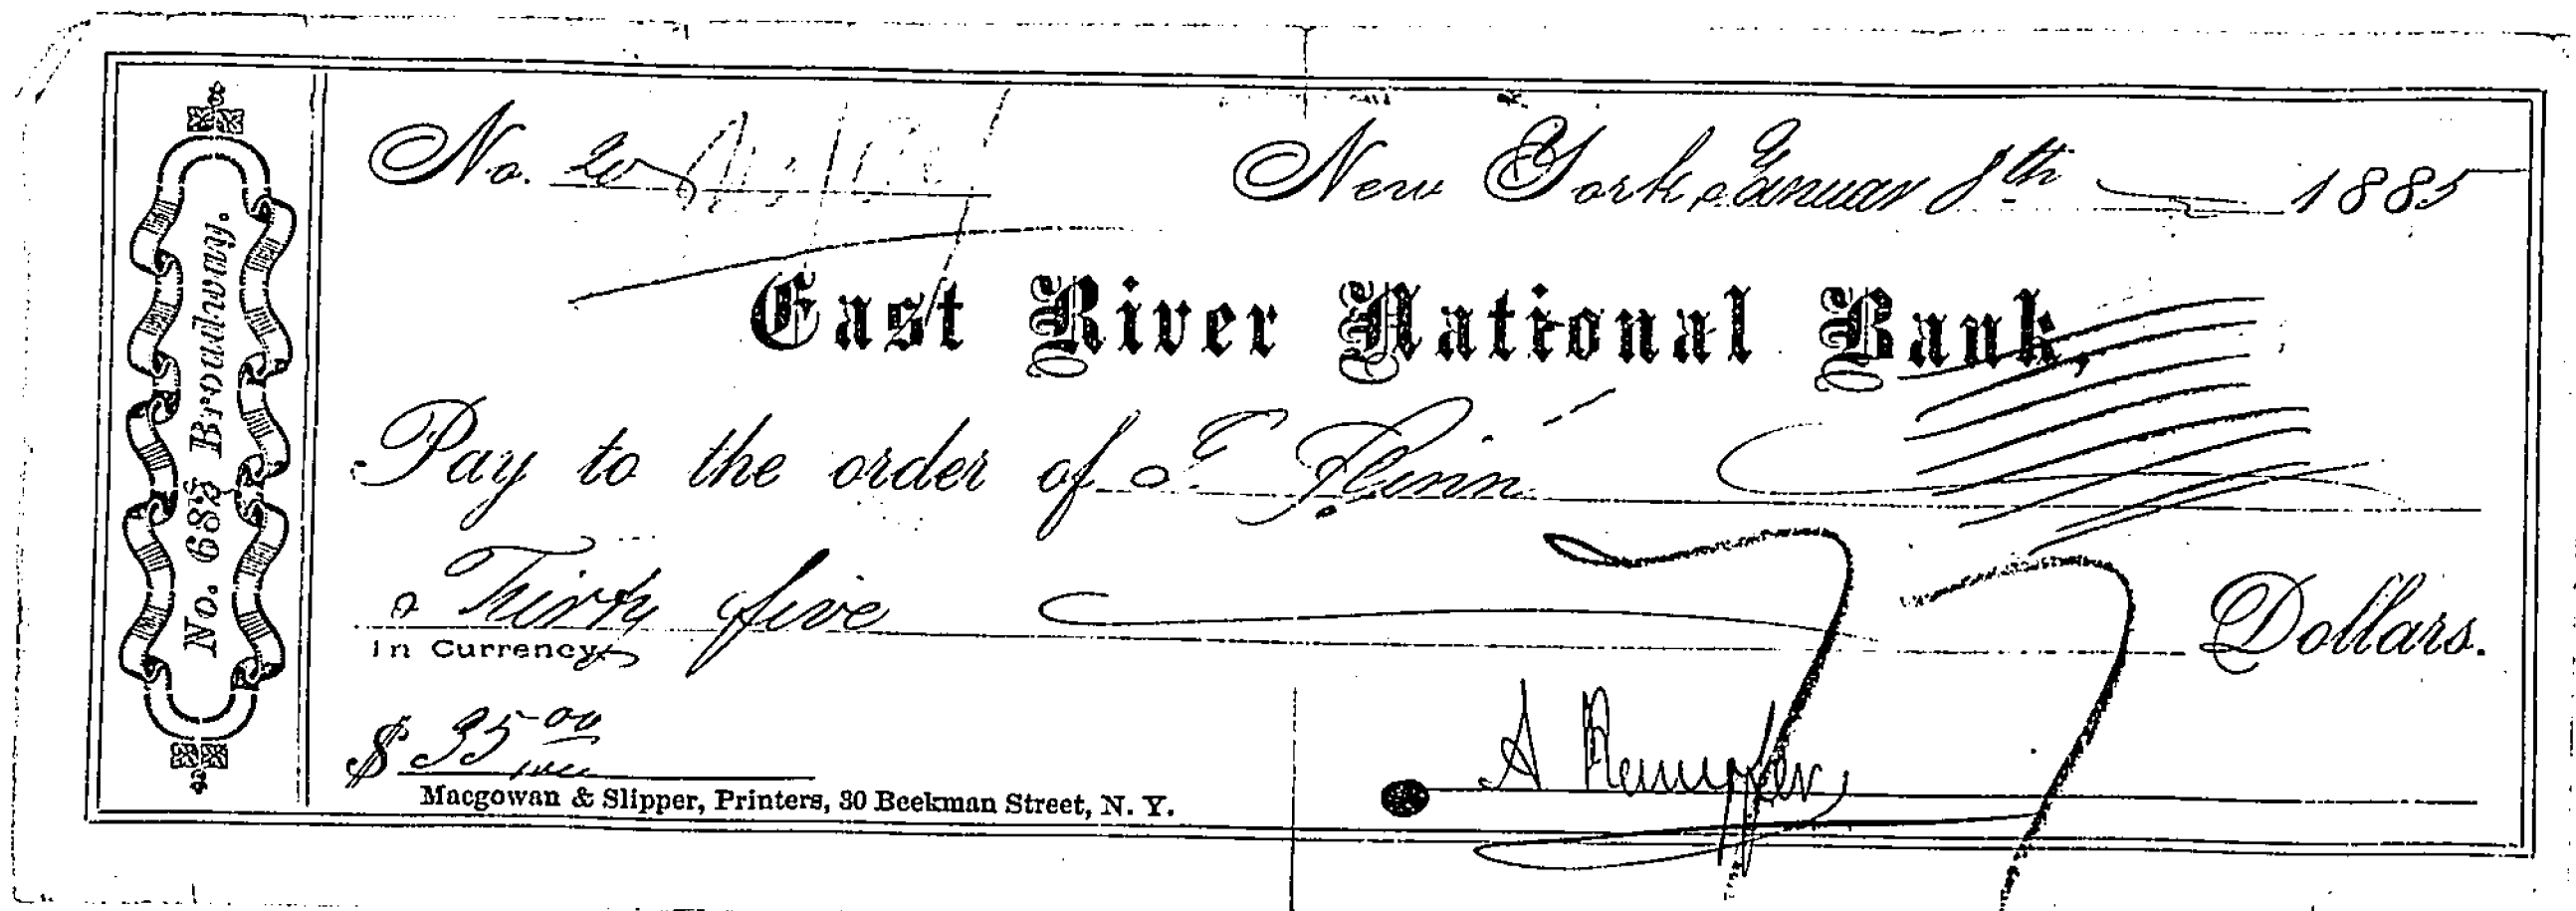 No. 683 Broadway.
No. 20
New York, January 8th 1885
East River National Bank,
Pay to the order of T Flinn
Thirty five Dollars.
In Currency
$ 35 00
Macgowan & Slipper, Printers, 30 Beekman Street, N. Y.
A